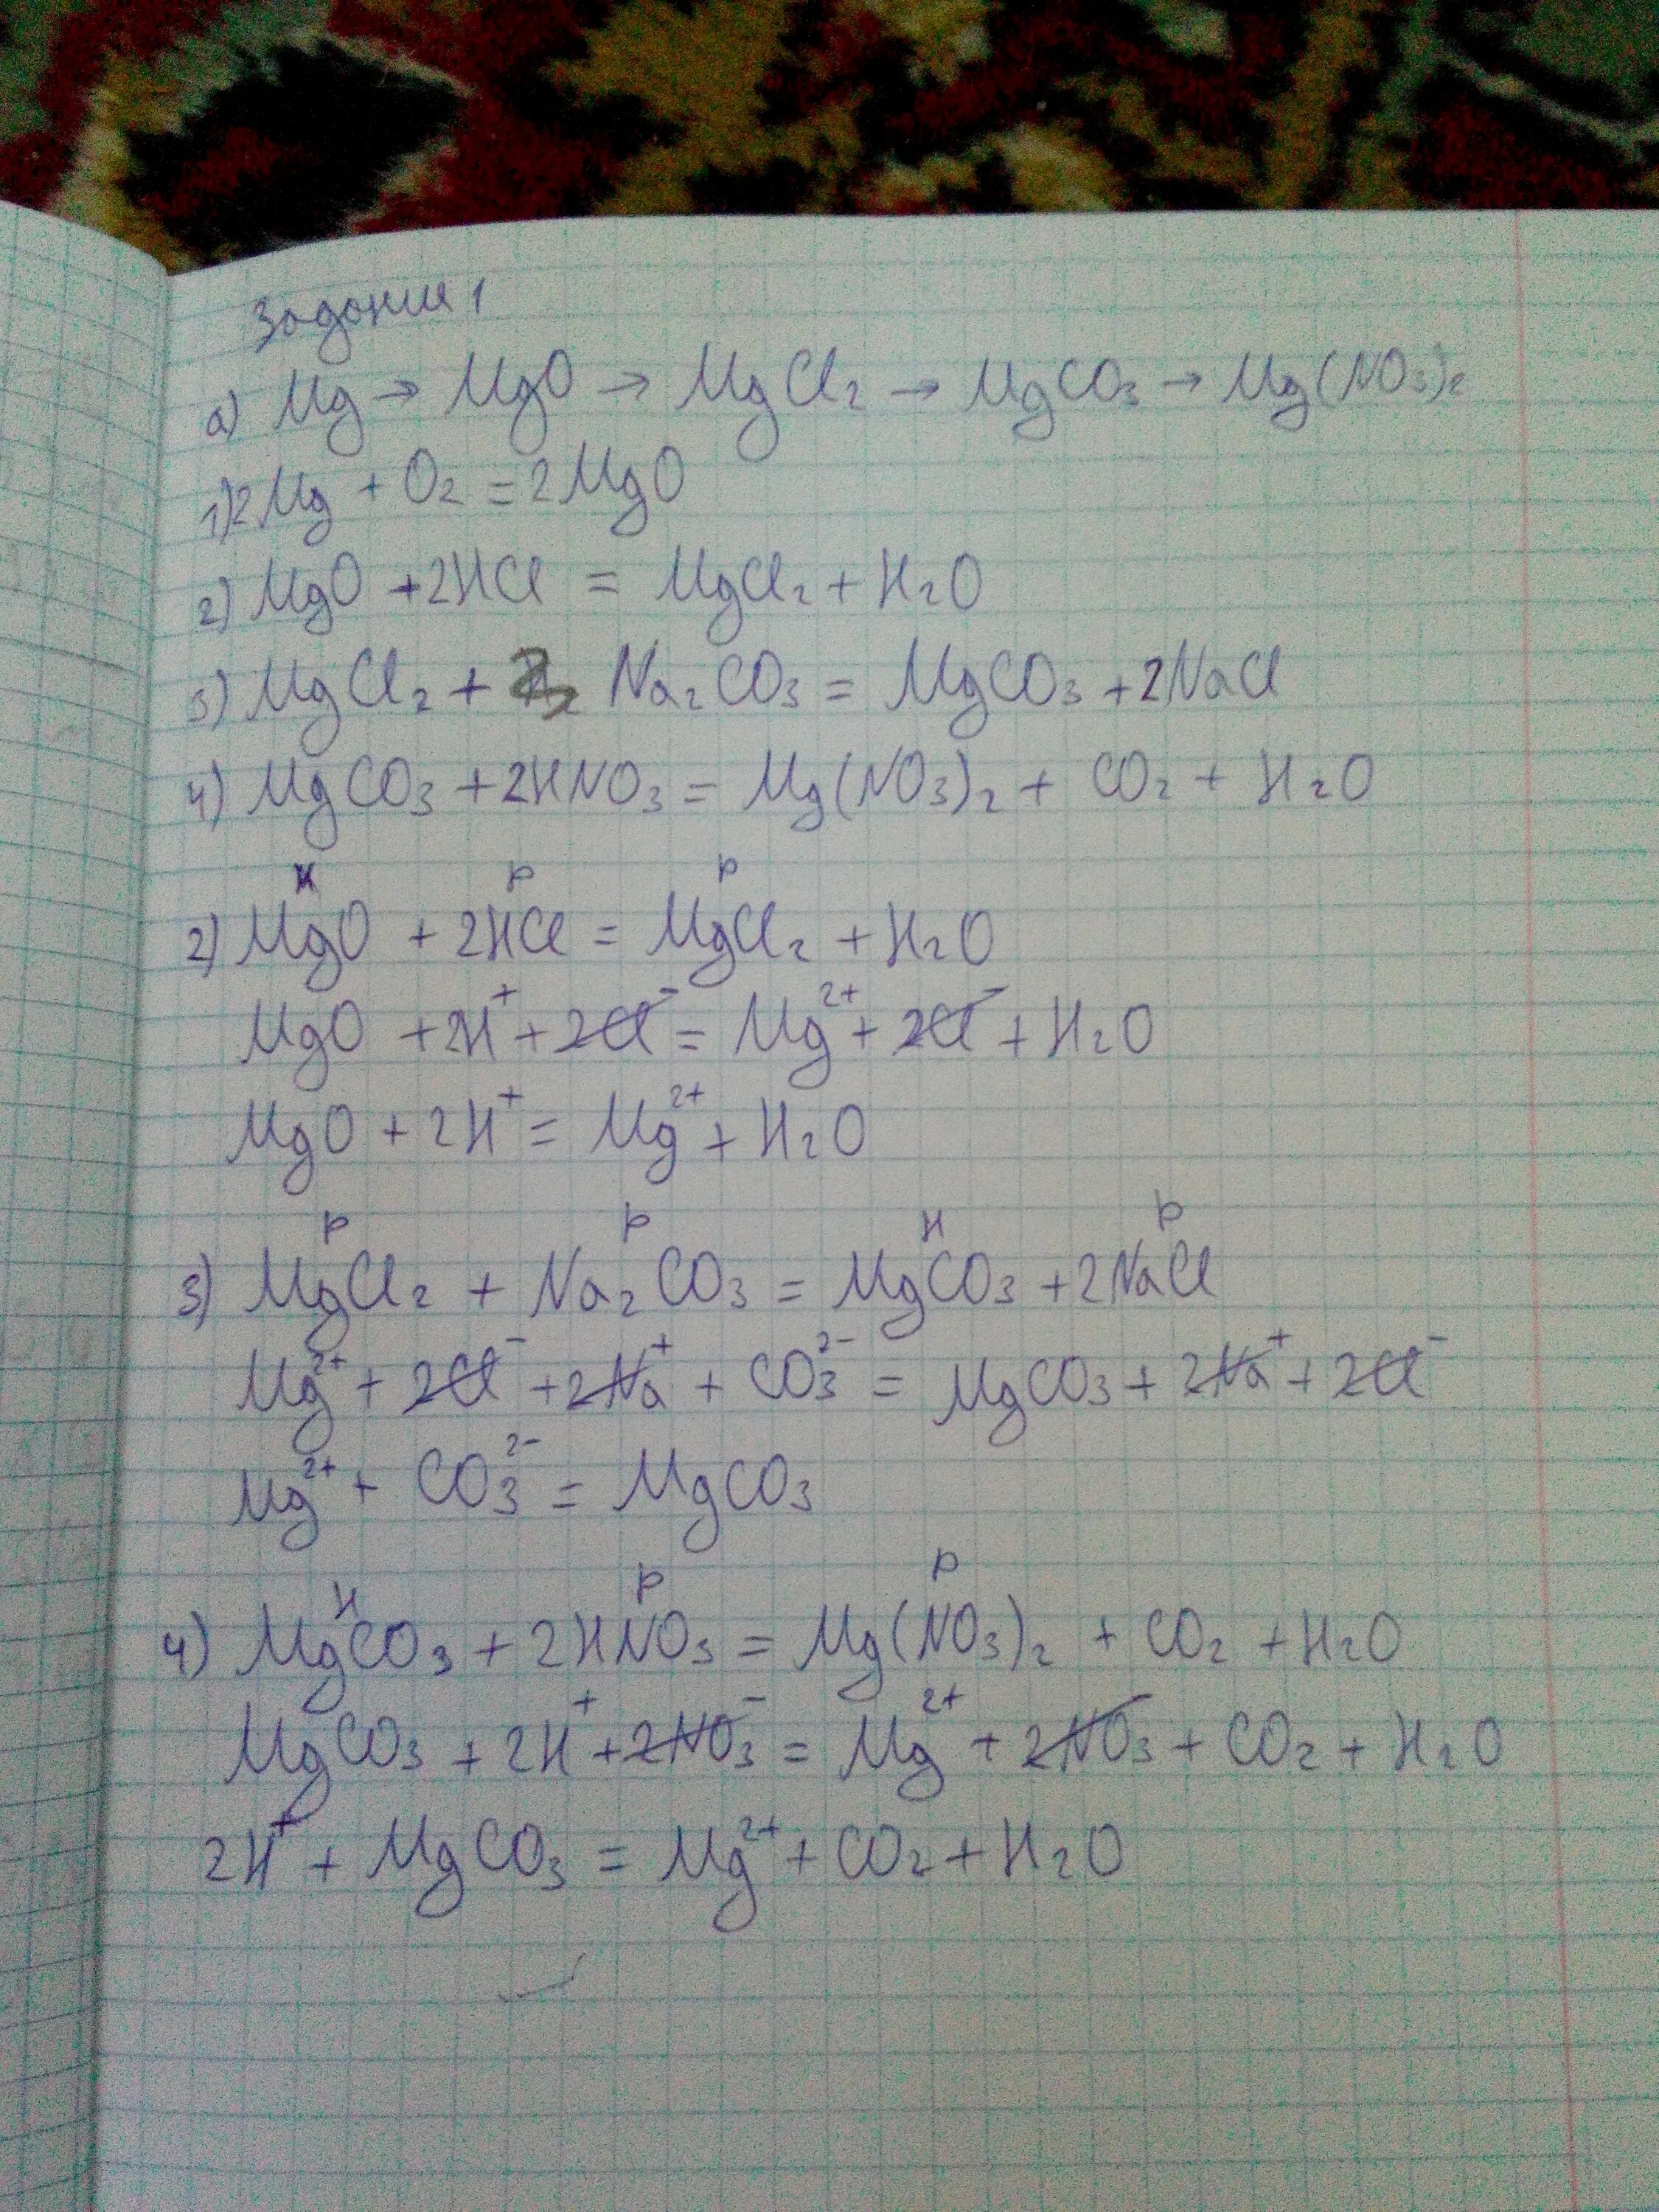 Задания 1
а) Mg → MgO → MgCl₂ → MgCO₃ → Mg(NO₃)₂
1) 2Mg + O₂ = 2MgO
2) MgO + 2HCl = MgCl₂ + H₂O
3) MgCl₂ + Na₂CO₃ = MgCO₃ + 2NaCl
4) MgCO₃ + 2HNO₃ = Mg(NO₃)₂ + CO₂ + H₂O
н р р
2) MgO + 2HCl = MgCl₂ + H₂O
MgO + 2H⁺ + 2Cl⁻ = Mg²⁺ + 2Cl⁻ + H₂O
MgO + 2H⁺ = Mg²⁺ + H₂O
р р н р
3) MgCl₂ + Na₂CO₃ = MgCO₃ + 2NaCl
Mg²⁺ + 2Cl⁻ + 2Na⁺ + CO₃²⁻ = MgCO₃ + 2Na⁺ + 2Cl⁻
Mg²⁺ + CO₃²⁻ = MgCO₃
н р р
4) MgCO₃ + 2HNO₃ = Mg(NO₃)₂ + CO₂ + H₂O
MgCO₃ + 2H⁺ + 2NO₃⁻ = Mg²⁺ + 2NO₃ + CO₂ + H₂O
2H⁺ + MgCO₃ = Mg²⁺ + CO₂ + H₂O